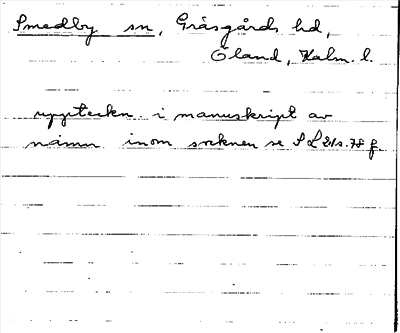 Smedby sn, Gräsgårds hd,
Öland, Kalm. l.
uppteckn. i manuskript av
namn inom socknen se SL 21 s. 78 f.